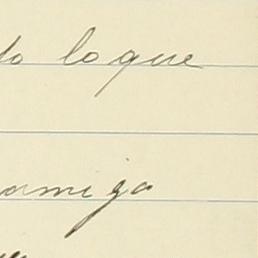 lo que
amiga